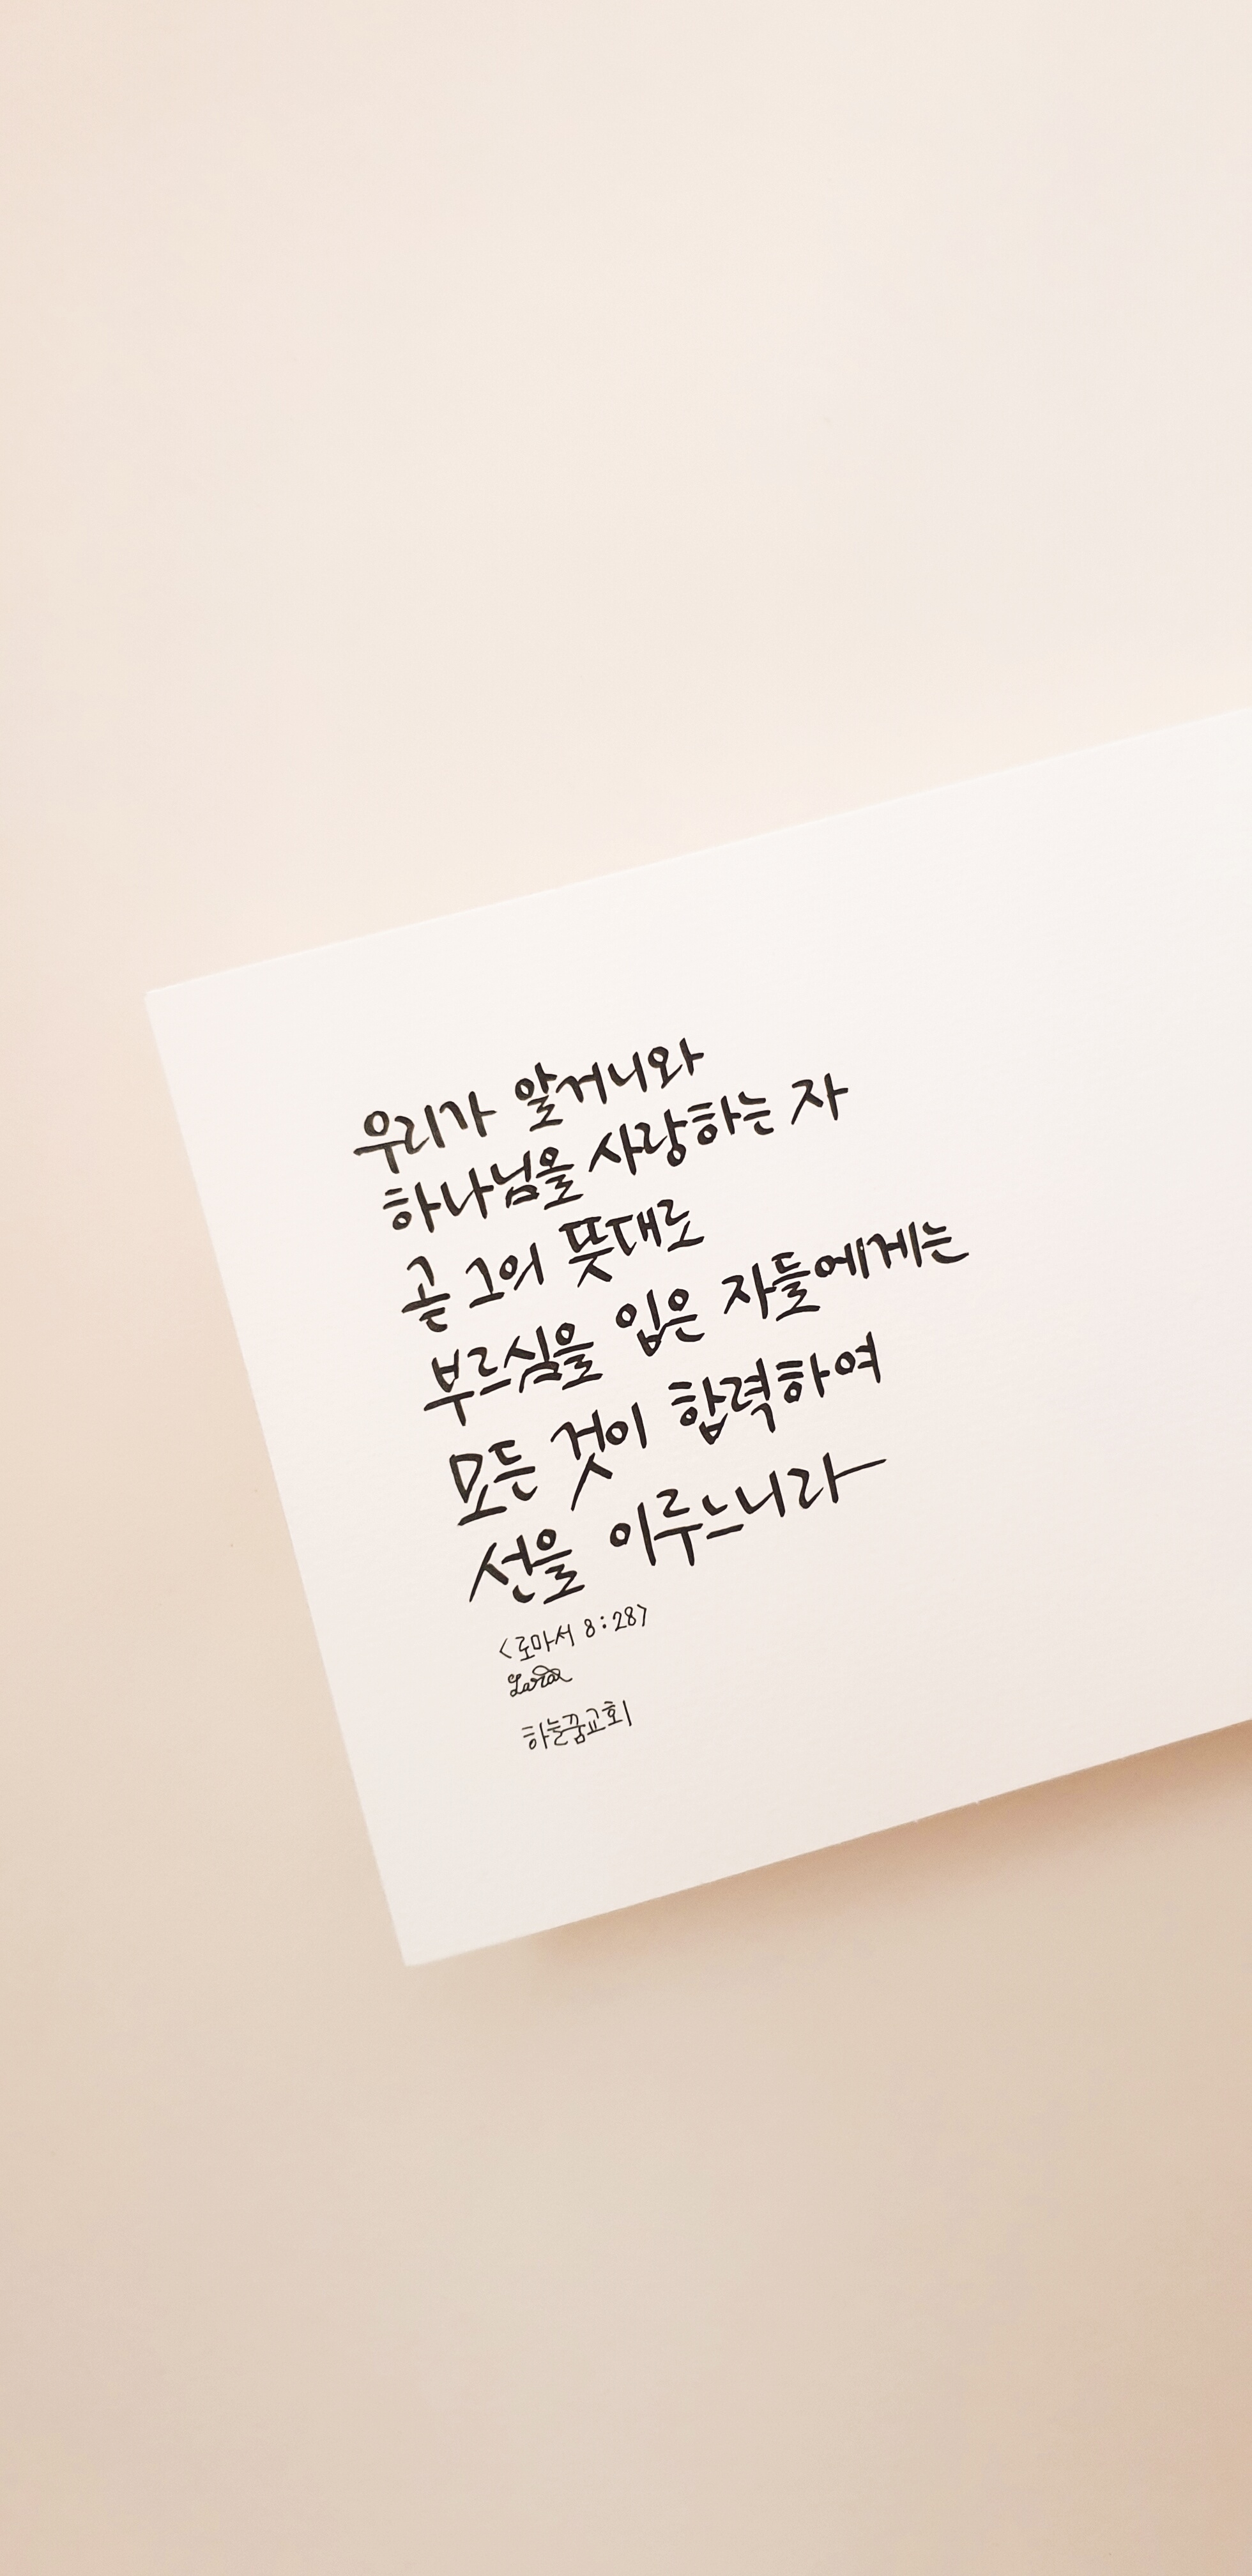 우리가 알거니와
하나님을 사랑하는 자
곧 그의 뜻대로
부르심을 입은 자들에게는
모든 것이 합력하여
선을 이루느니라
<로마서 8:28>
하늘꿈교회